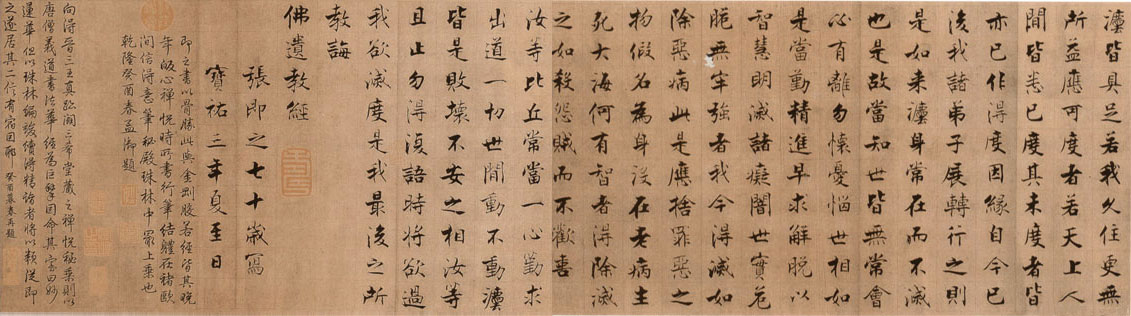 法皆具足若我久住更無
所益應可度者若天上人
間皆悉已度其未度者皆
亦已作得度因緣自今已
後我諸弟子展轉行之則
是如來法身常在而不滅
也是故當知世皆無常會
必有離勿懷憂惱世相如
是當勤精進早求解脫以
智慧明滅諸癡闇世實危
脆無牢強者我今得滅如
除惡病此是應捨罪惡之
物假名為身沒在老病生
死大海何有智者得除滅
之如殺怨賊而不歡喜
汝等比丘常當一心勤求
出道一切世間動不動法
皆是敗壞不安之相汝等
且止勿得復語時將欲過
我欲滅度是我最後之所
教誨
佛遺教經
張即之七十歲寫
寶祐三年夏至日
即之書以骨勝此與金剛般若經皆其晚
年皈心禪悅時所書行筆結體在褚歐
間信得意筆秘殿珠林中最上乘也
乾隆癸酉春孟御題
向得晉三王真跡闢三希堂藏之禪悅秘乘則以
唐僧義道書法華經為巨擘因命其室曰妙
蓮華但以珠林編
之遂居其二信有宿因耶 癸酉暮春再題